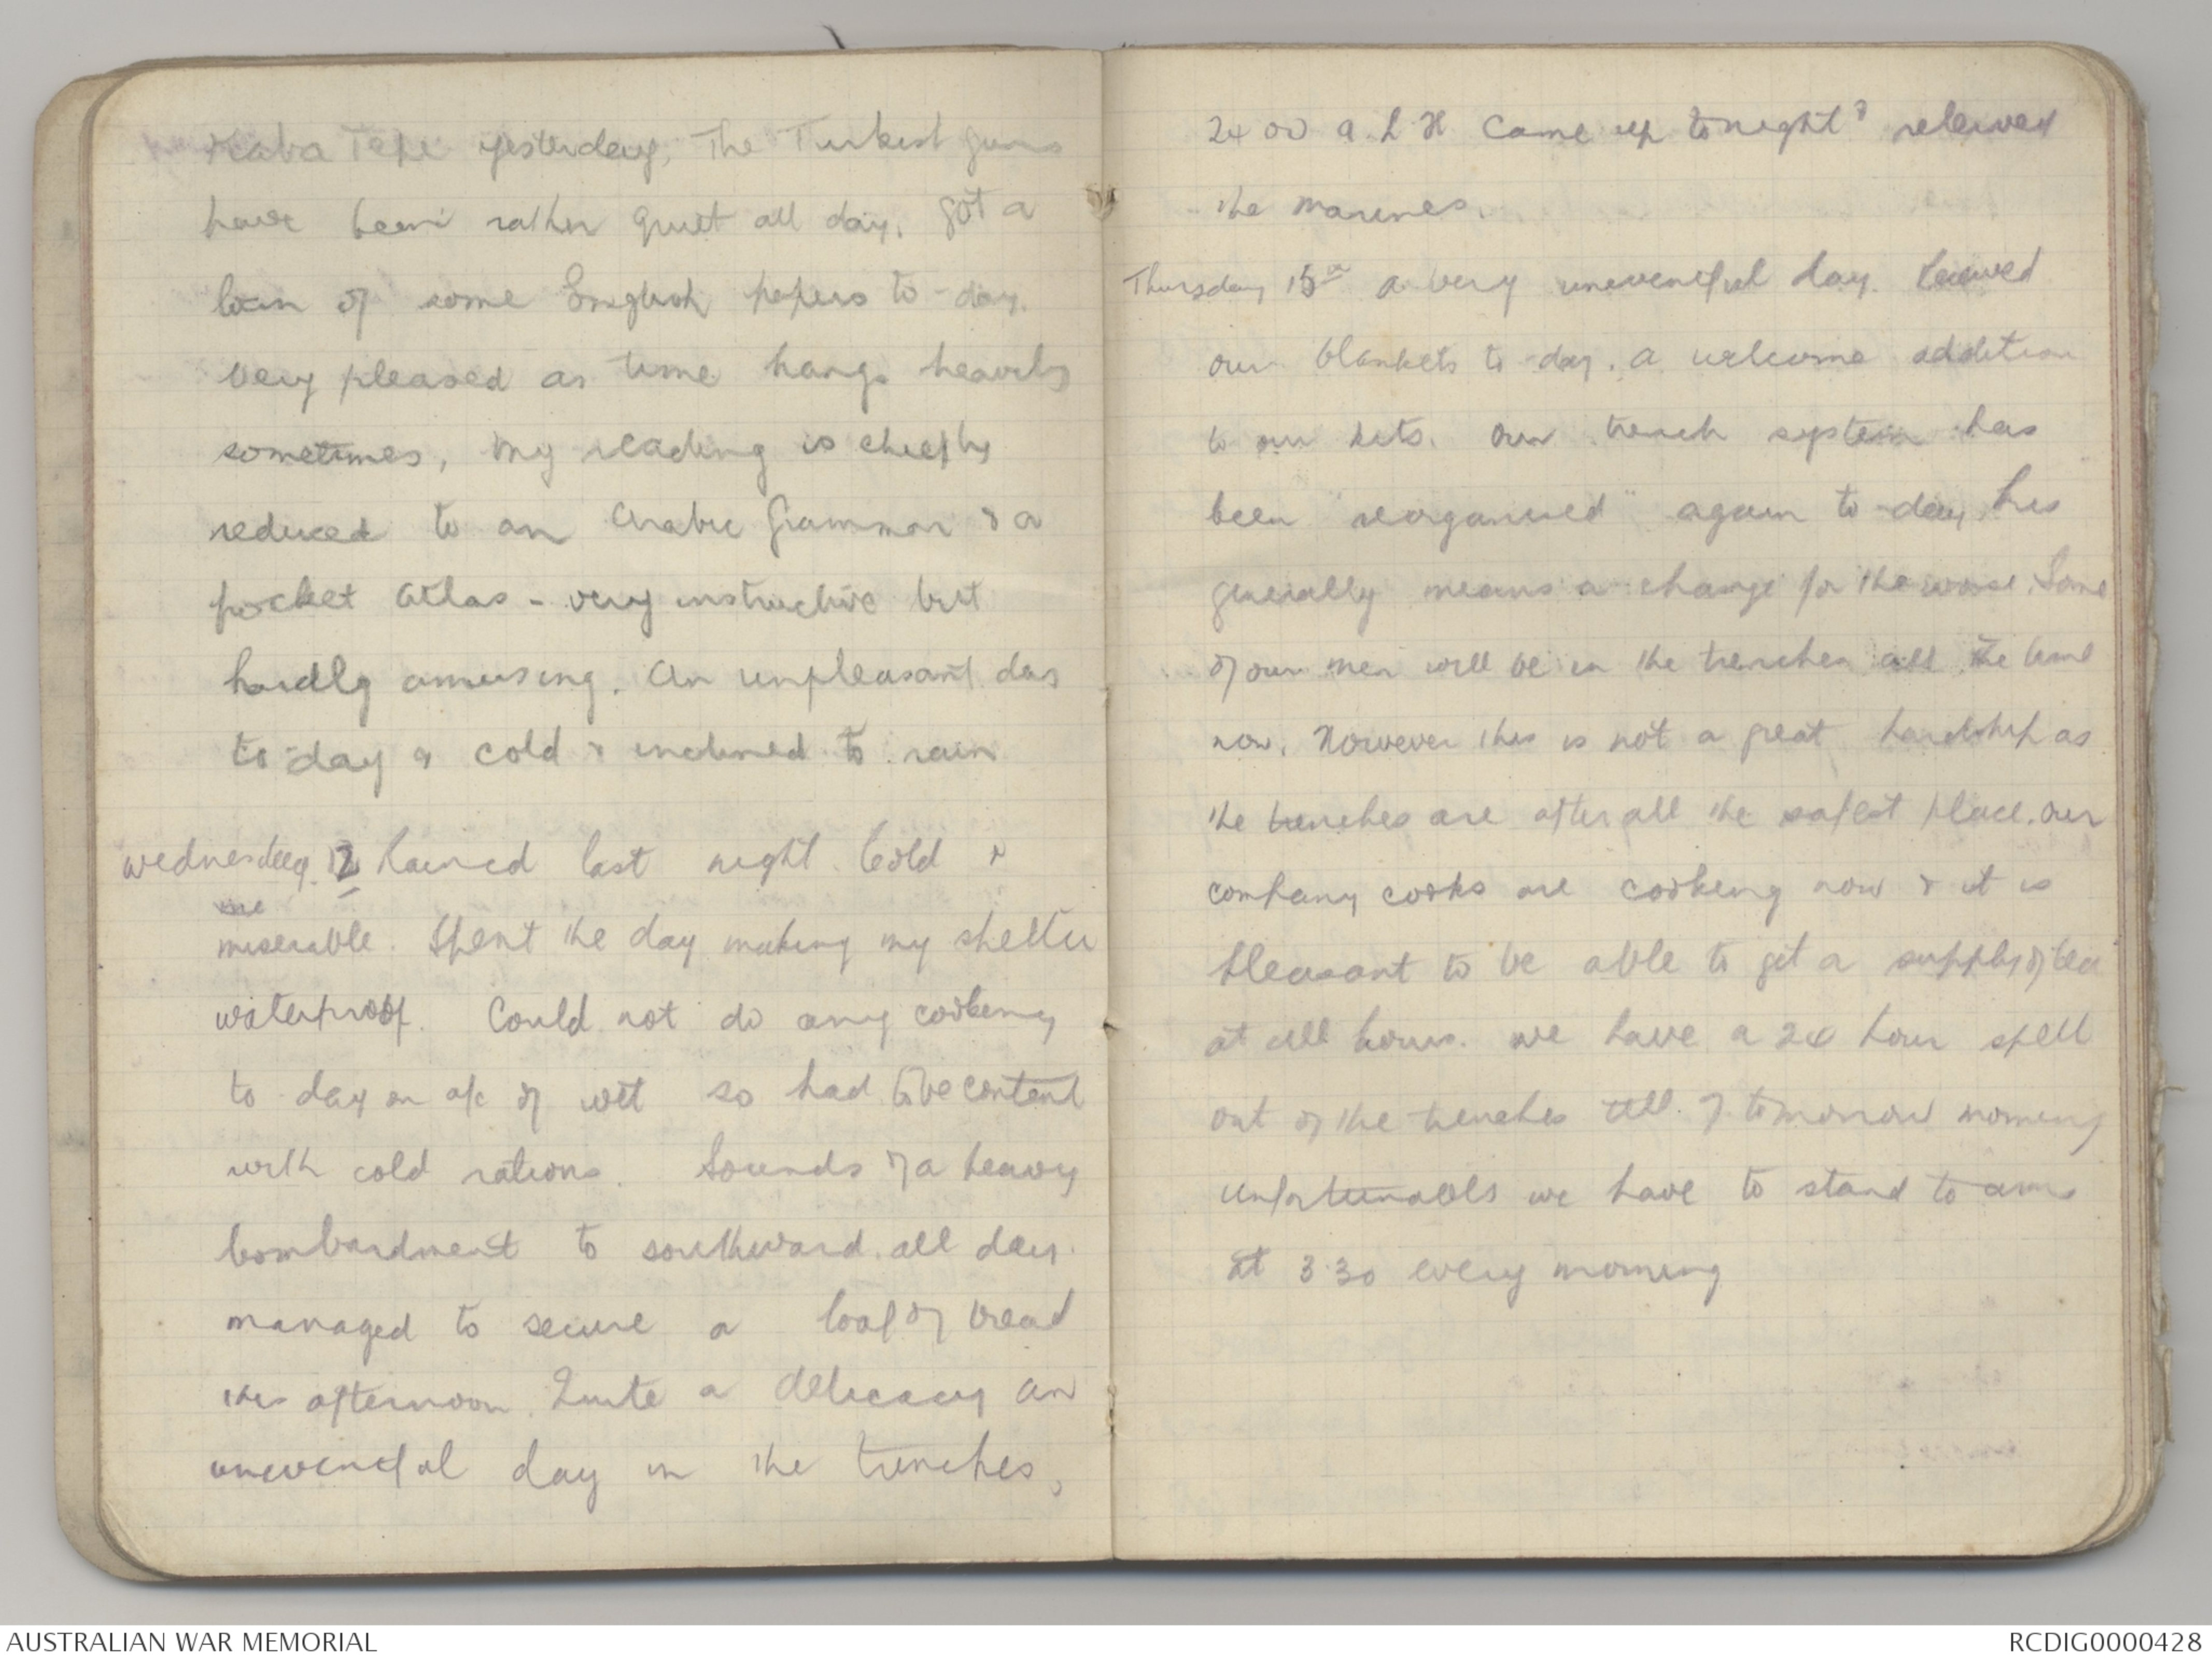 Kaba Tepe yesterday, The Turkish guns
have been rather quiet all day. Got a
loan of some English papers to-day.
Very pleased as time hangs heavily
sometimes, My reading is chiefly
reduced to an Arabic Grammar & a
pocket Atlas - very instructive but
hardly amusing. An unpleasant day
to-day & cold & inclined to rain
Wednesday 12 Rained last night Cold &
miserable. Spent the day making my shelter
waterproof. Could not do any cooking
to day on a/c of wet so had to be content
with cold rations. Sounds of a heavy
bombardment to southward all day.
managed to secure a loaf of bread
this afternoon. Quite a delicacy an
uneventful day in the trenches,
2400 A.L.H Came up tonight & releived
the marines.
Thursday 13th a very uneventful day. Received
our blankets to-day. A welcome addition
to our kits. Our trench system has
been "reorganised" again to-day, this
generally means a change for the worse. Some
of our men will be in the trenches all the time
now. However this is not a great hardship as
the trenches are after all the safest place. Our
company cooks are cooking now & it is
pleasant to be able to get a supply of tea
at all hours. We have a 24 hour spell
out of the trenches till 7 tomorrow morning
unfortunately we have to stand to arms
at 3.30 every morning
AUSTRALIAN WAR MEMORIAL
RCDIG0000428